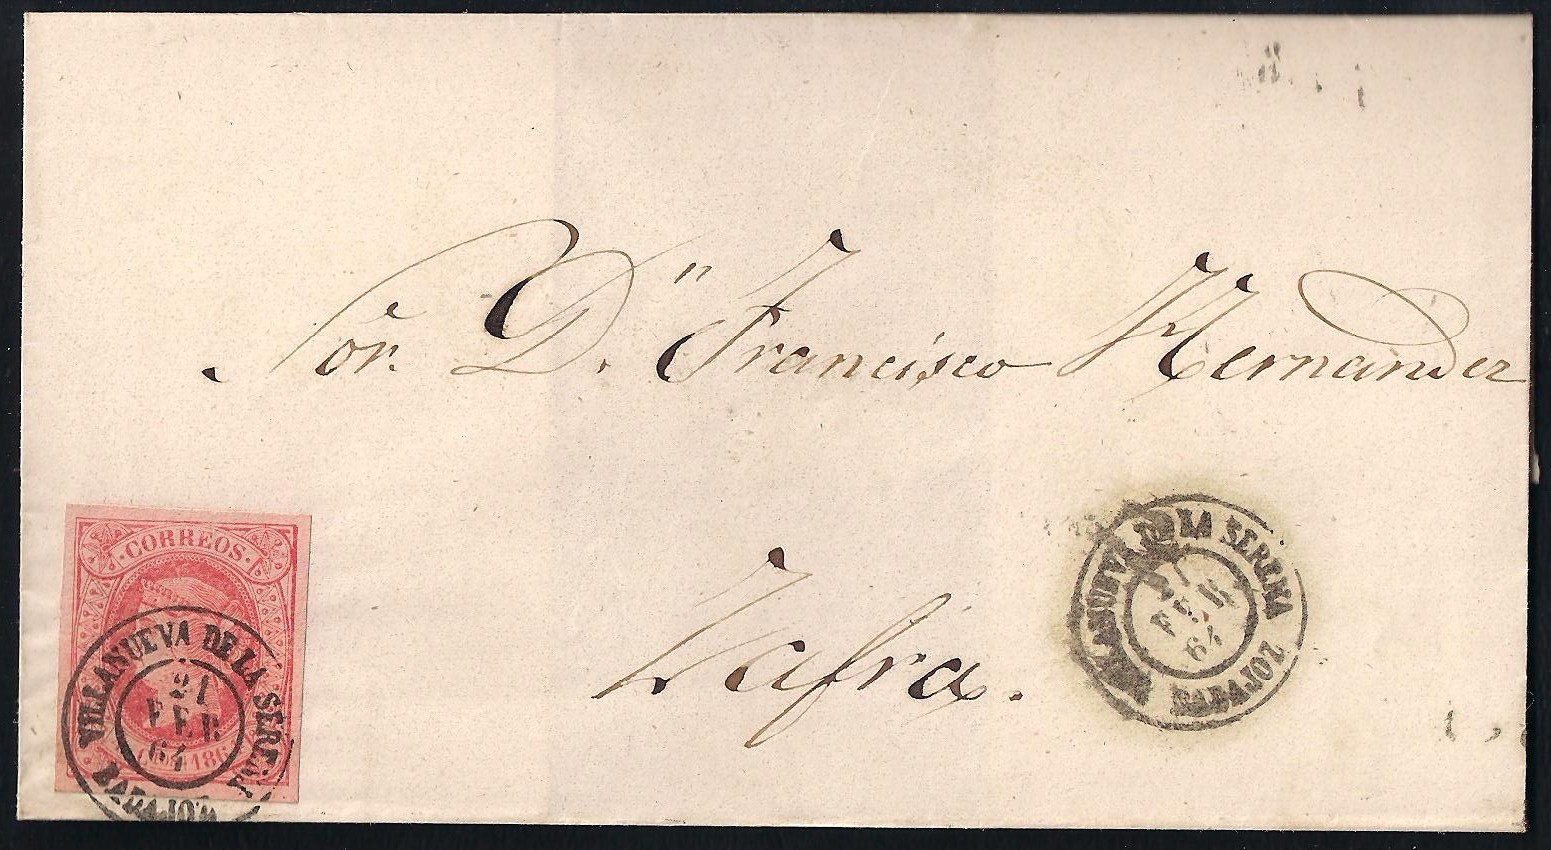 Sor. Dn. Francisco Hernandez
Zafra.
CORREOS
VILLANUEVA DE LA SERENA
21
FEB
64
BADAJOZ
VILLANUEVA DE LA SERENA
21
FEB
64
BADAJOZ